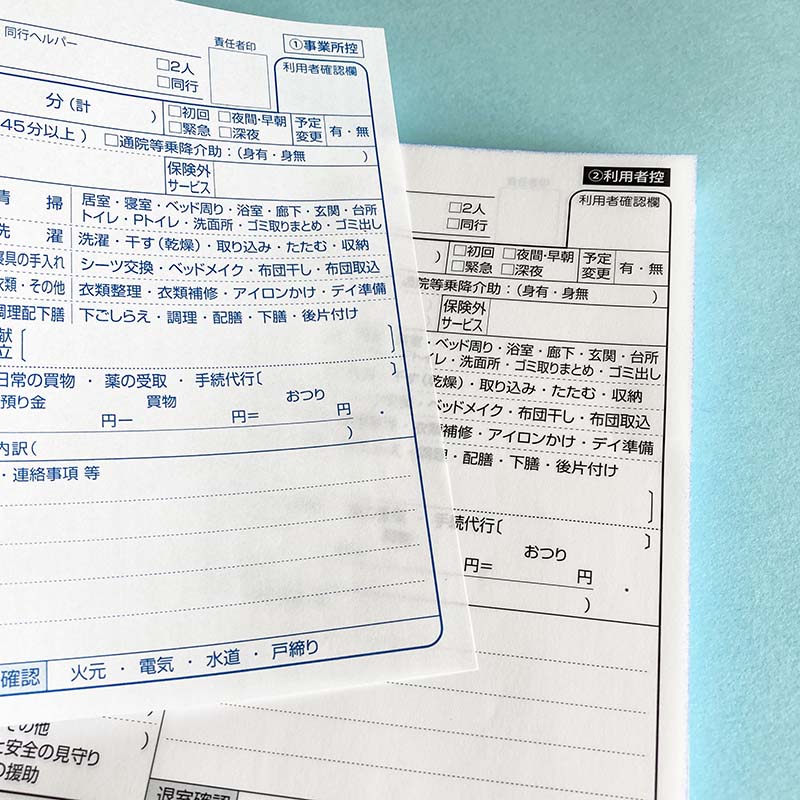 同行ヘルパー
責任者印
①事業所控
□2人
□同行
利用者確認欄
分(計 )
□初回 □夜間・早朝
□緊急 □深夜
予定
変更
有・無
45分以上) □通院等乗降介助:(身有・身無 )
保険外
サービス
清 掃
居室・寝室・ベッド周り・浴室・廊下・玄関・台所
トイレ・Pトイレ・洗面所・ゴミ取りまとめ・ゴミ出し
洗 濯
洗濯・干す(乾燥)・取り込み・たたむ・収納
寝具の手入れ
シーツ交換・ベッドメイク・布団干し・布団取込
衣類・その他
衣類整理・衣類補修・アイロンかけ・デイ準備
調理配下膳
下ごしらえ・調理・配膳・下膳・後片付け
献
立
日常の買物 ・ 薬の受取 ・ 手続代行〔 〕
預り金 買物 おつり
円ー 円= 円 .
内訳( )
・連絡事項 等
確認 火元 ・ 電気 ・ 水道 ・ 戸締り
②利用者控
責任者印
□2人
□同行
利用者確認欄
)
□初回 □夜間・早朝
□緊急 □深夜
予定
変更
有・無
院等乗降介助:(身有・身無 )
保険外
サービス
・ベッド周り・浴室・廊下・玄関・台所
トイレ・洗面所・ゴミ取りまとめ・ゴミ出し
乾燥)・取り込み・たたむ・収納
ベッドメイク・布団干し・布団取込
補修・アイロンかけ・デイ準備
・配膳・下膳・後片付け
・ 手続代行〔 〕
おつり
円= 円 .
)
その他
と安全の見守り
の援助
)
退室確認